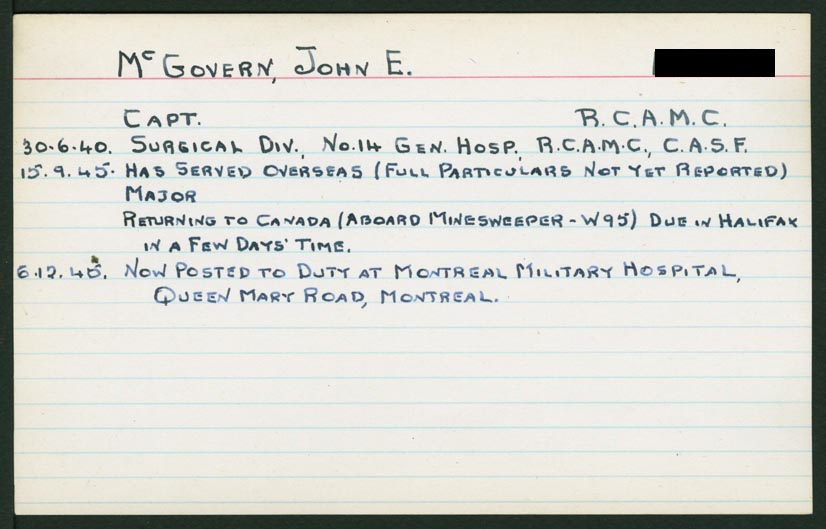 McGovern, John E.
Capt. R.C.A.M.C.
30.6.40. Surgical Div., No.14 Gen. Hosp., R.C.A.M.C., C.A.S.F.
15.9.45. Has Served Overseas (Full Particulars Not Yet Reported)
Major
Returning to Canada (Aboard Minesweeper - W95) Due in Halifax
in a Few Days' Time.
6.12.45. Now Posted to Duty at Montreal Military Hospital,
Queen Mary Road, Montreal.